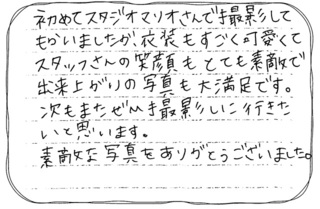 初めてスタジオマリオさんで撮影して
もらいましたが、衣装もすごく可愛くて
スタッフさんの笑顔もとても素敵で
出来上がりの写真も大満足です。
次もまたぜひ撮影しに行きた
いと思います。
素敵な写真をありがとうございました。